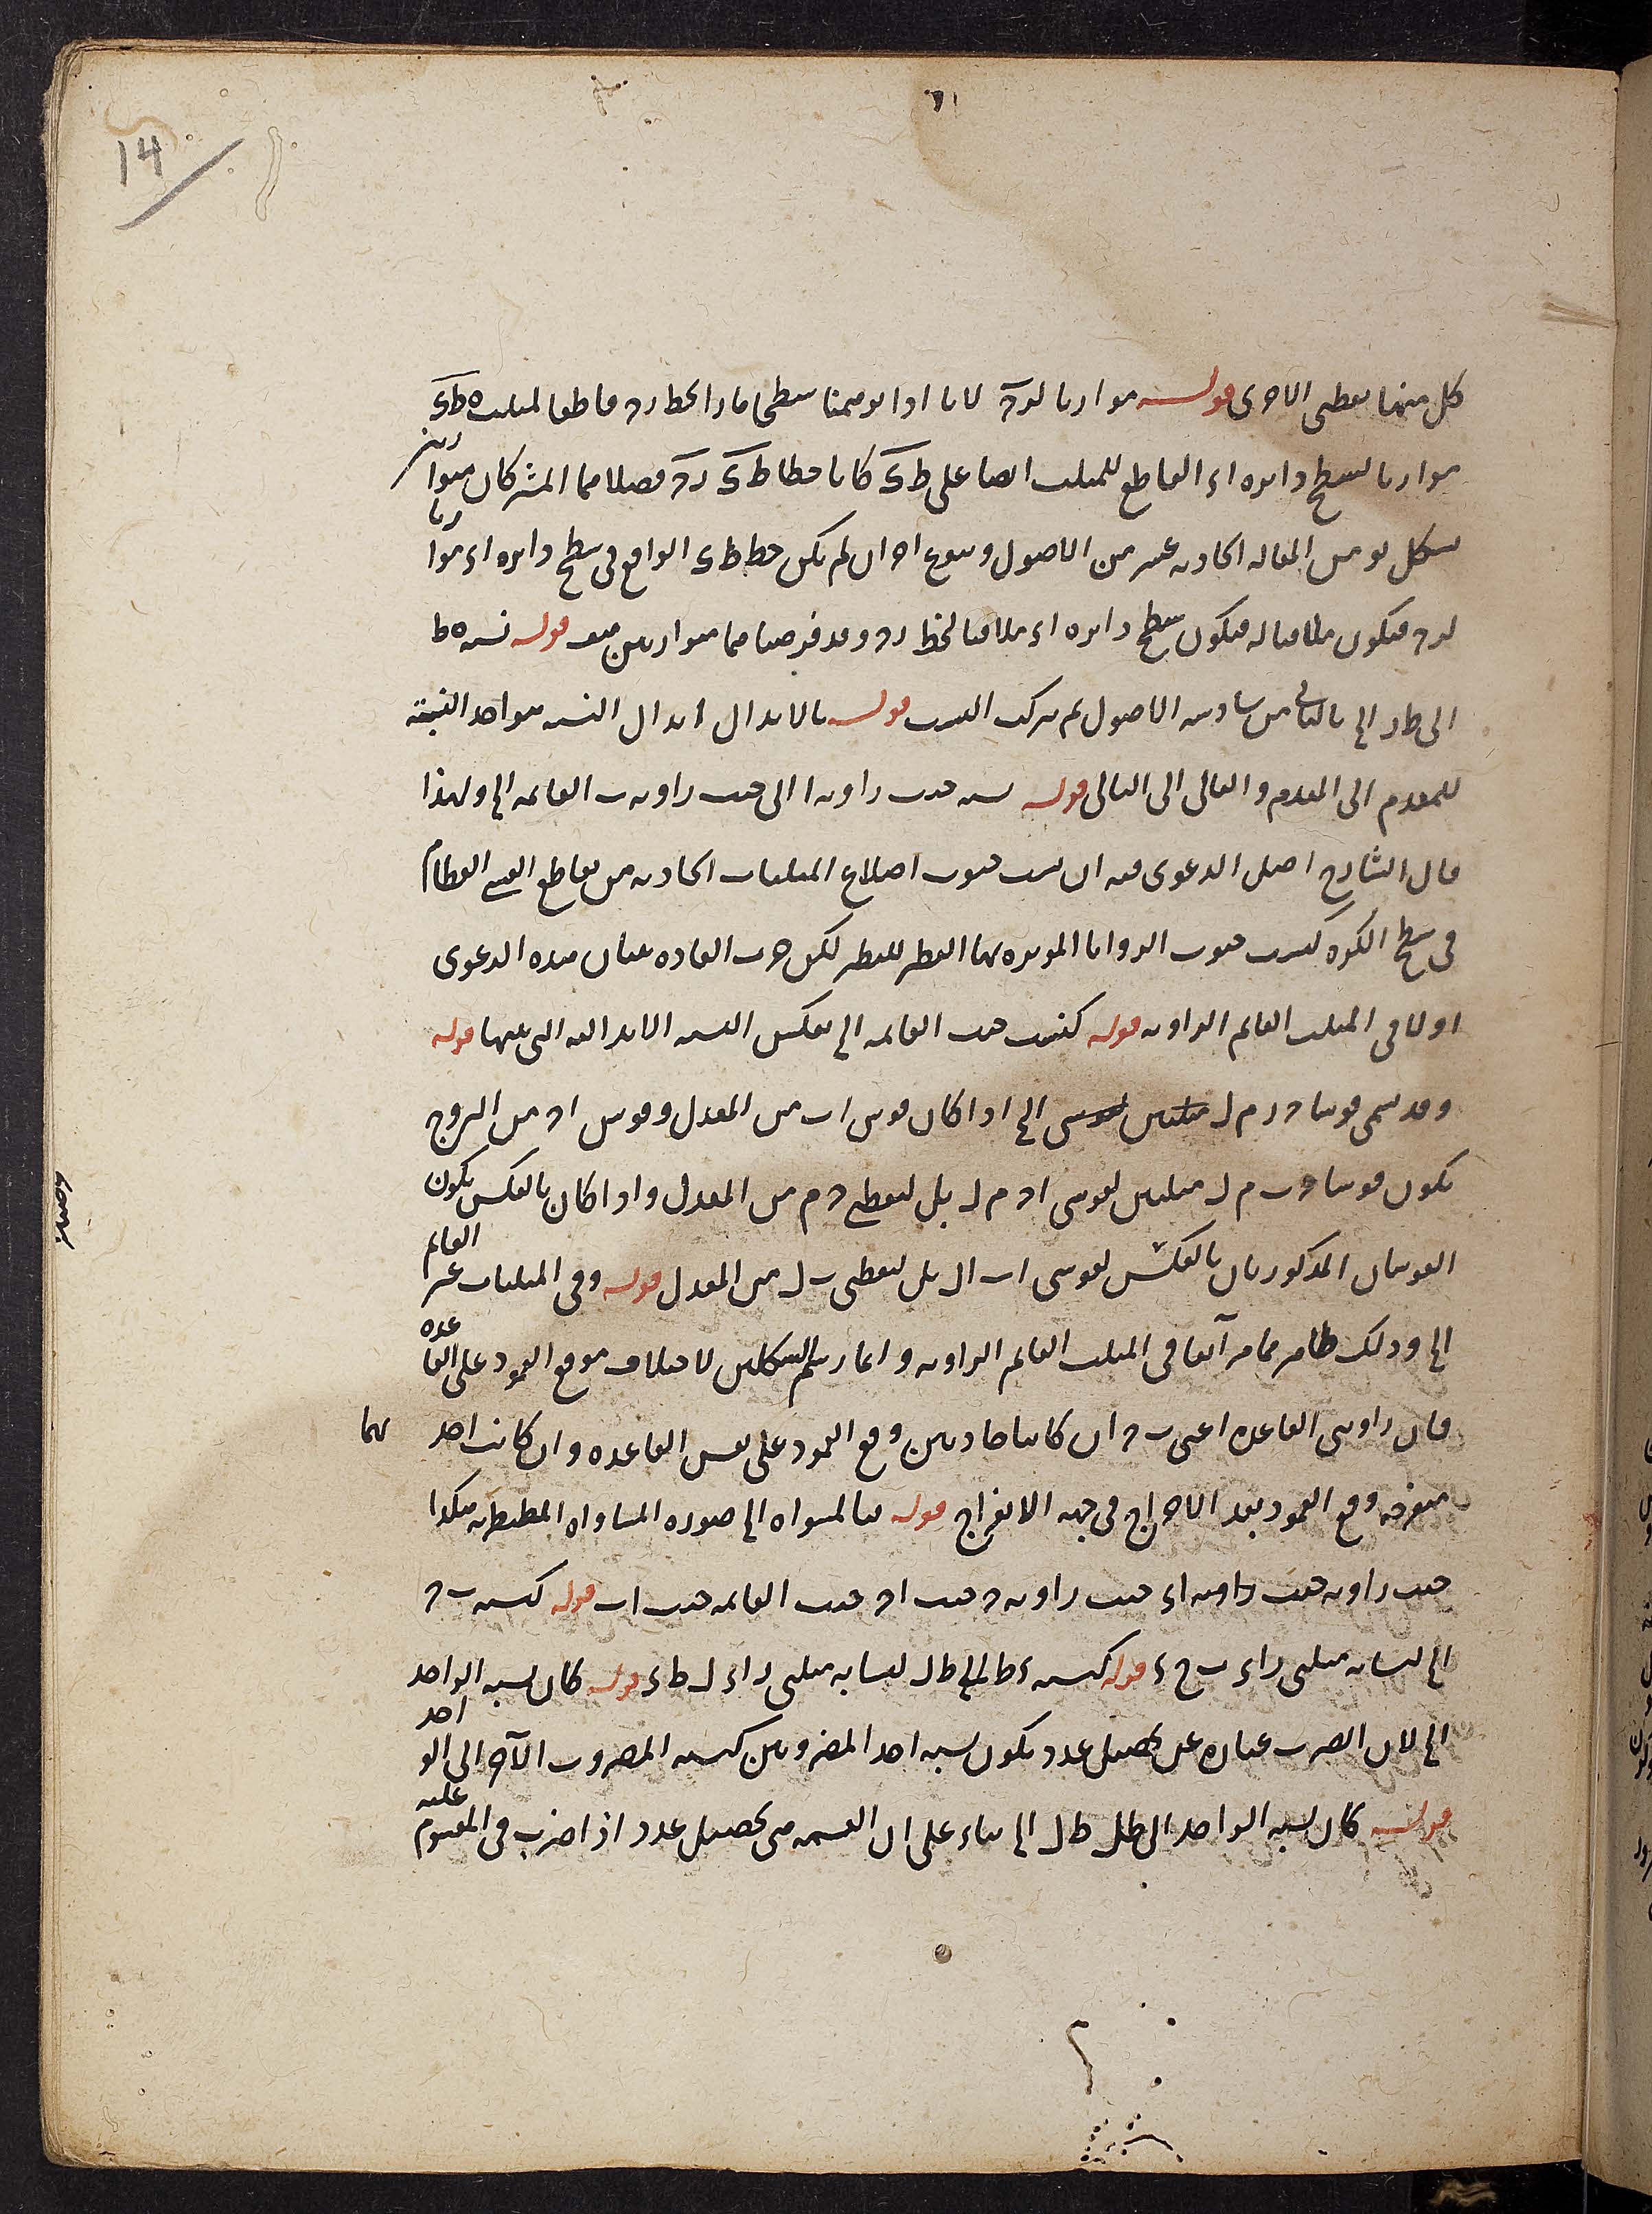 14
كل منهما يعطى الاخرى قوله موازيا لد ح لانا اذا توهمنا سطحا مارا بخط ر ح قاطعا لمثلث ه ط ك
موازيا لسطح دايره اء القاطع للمثلث ايضا على ط ك كانا خطا ط ك ر ح فصلاهما المشتركان متوازيين
بشكل يو من المقاله الحاديه عشر من الاصول وبنوع اخر ان لم يكن خط ط ك الواقع فى سطح دايره اء موازيا
لد ح فيكون ملاقيا له فيكون سطح دايره اء ملاقيا لخط ر ح وقد فرضناهما متوازيين هف قوله نسبه ه ط
الى ط ر الخ بالثانى من سادسه الاصول ثم تركب النسب قوله بالابدال ابدال النسبه هو اخذ النسبة
للمقدم الى المقدم والتالى الى التالى قوله نسبه جيب زاويه ا الى جيب زاويه ب القايمه الخ ولهذا
قال الشارح اصل الدعوى فيه ان نسب جيوب اضلاع المثلثات الحادثه من تقاطع القسى العظام
فى سطح الكره كنسب جيوب الزوايا الموتره بها النظير للنظير لكن جرت العاده ببيان هذه الدعوى
اولا فى المثلث القايم الزاويه قوله كنسبت جيب القايمه الخ بعكس النسبه الابداليه التى بينها قوله
وقد سمى قوسا ح ر م ل الخ اذا كان قوس اب من المعدل وقوس ا ح من البروج
يكون قوسا ح ب م ل ميلين لقوسى ا ح م ل بل لنقطتى ح م من المعدل واذا كان بالعكس يكون
القوسان المذكورتان بالعكس لقوسى اب ال بل لنقطتى ب ل من المعدل قوله وفى المثلثات غير القايم
الخ وذلك ظاهر مما مر آنفا فى المثلث القايم الزاويه وانما رسم الشكلين لاختلاف موقع العمود على القاعده
فان زاويتى القاعده اعنى ب ح ان كانتا حادتين وقع العمود على نفس القاعده وان كانت احد بهما
منفرجه وقع العمود بعد الاخراج فى جهه الانفراج قوله فبالمساواه الخ صوره المساواه المضطربه هكذا
جيب زاويه جيب زاويه اء جيب زاويه ح جيب ا ح جيب القايمه جيب اب قوله كنسبه ب ح
الخ لتشابه مثلثى راء ب ح ء قوله كنسبه ء ط الخ ط ل لتشابه مثلثى راء ل ط ء قوله كان نسبه الواحد
الخ لان الضرب عباره عن تحصيل عدد يكون نسبه احد المضروبين كنسبه المضروب الآخر الى الواحد
قوله كان نسبه الواحد الى ظل ط ل الخ بناء على ان القسمه هى تحصيل عدد اذا ضرب فى المقسوم عليه